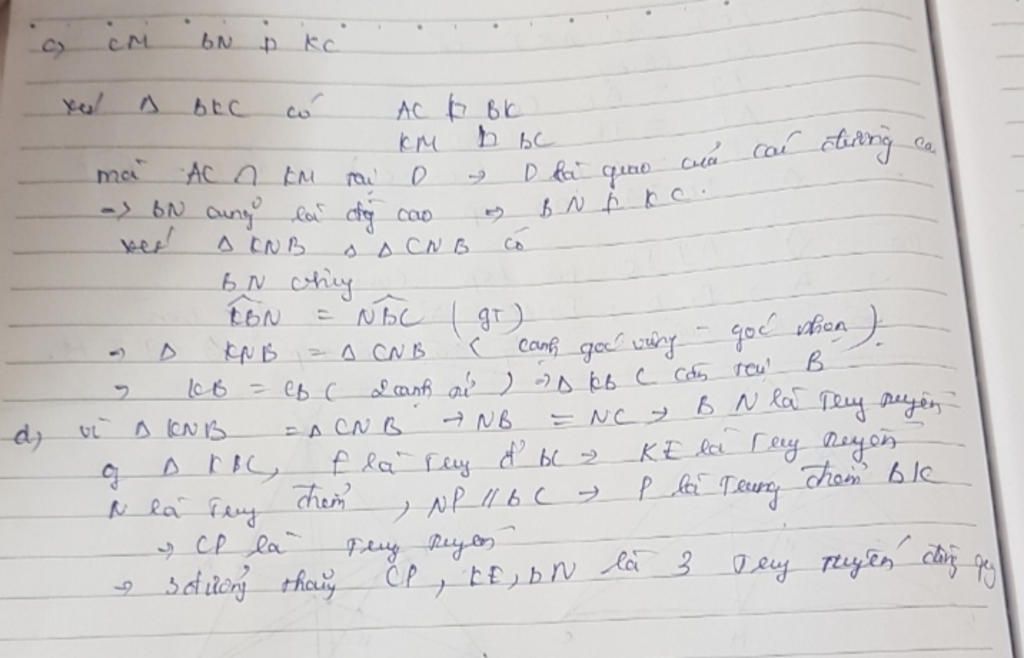 c) CM BN ⊥ KC
xét Δ BKC có AC ⊥ BK
KM ⊥ BC
mà AC ∩ KM tại D → D là giao của các đường cao
→ BN cũng là đg cao → BN ⊥ KC.
xét Δ KNB Δ CNB có
BN chung
KBN = NBC (gt)
→ Δ KNB = Δ CNB (cạnh góc vuông - góc nhọn).
→ KB = CB (2 cạnh) → Δ KBC cân tại B
d) vì Δ KNB = Δ CNB → NB = NC → BN là Trung tuyến
g Δ KBC, E là Trung đ' BC → KE là Trung tuyến
N là Trung điểm, NP // BC → P là Trung điểm BK
→ CP là Trung tuyến
→ 3 đường thẳng CP, KE, BN là 3 Trung tuyến đồng quy